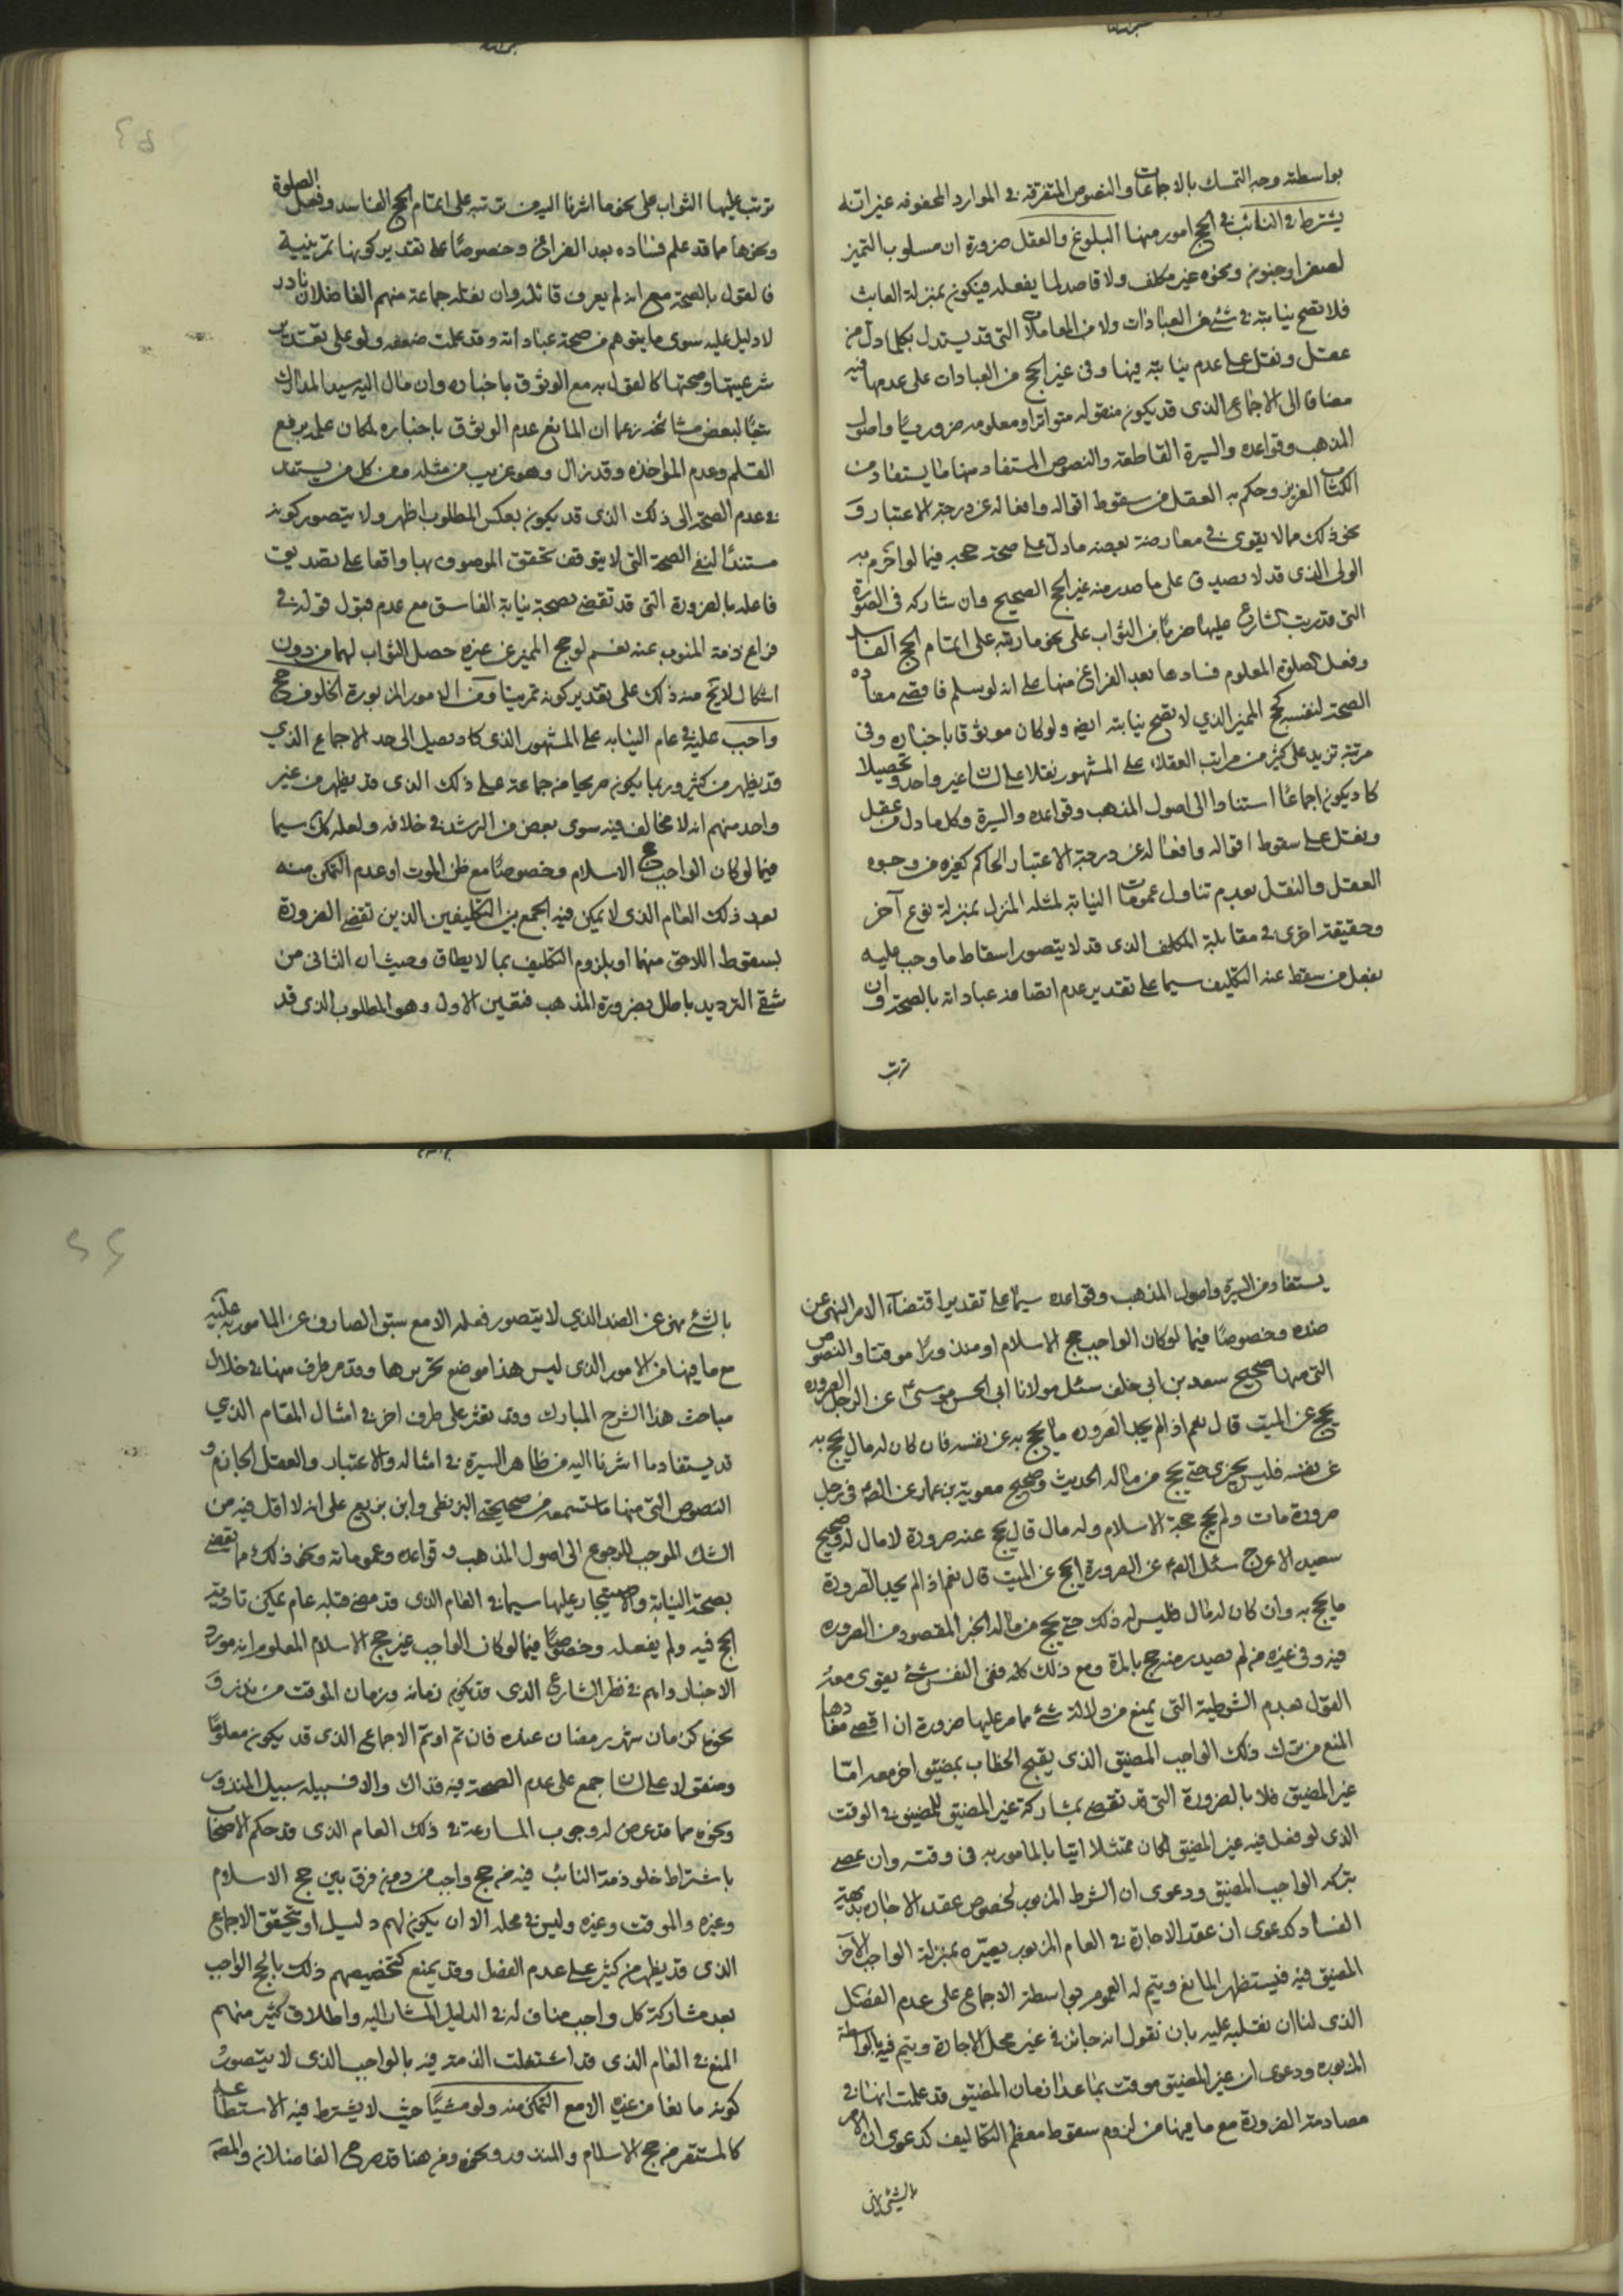 بواسطته وجه التمسك بالاجماعات والنصوص المتفرقة في الموارد المحفوفه غير انه
يشترط في النائب في الحج امور منها البلوغ والعقل ضرورة ان مسلوب التميز
لصغر او جنون ونحوه غير مكلف ولا قاصد لما يفعله فيكون بمنزلة العابث
فلا تصح نيابته في شئ من العبادات ولا من المعاملات التي قد يستدل بكلما دل من
عقل ونقل على عدم نيابته فيها وفي غير الحج من العبادات على عدمها فيه
مضافا الى الاجماع الذي قد يكون منقوله متواترا ومعلومه ضروريا واصول
المذهب وقواعده والسيرة القاطعة والنصوص المستفاد منها ما يستفاد من
الكتاب العزيز وحكم به العقل من سقوط اقواله وافعاله عن درجة الاعتبار وفي
نحو ذلك مما لا يقوى في معارضة بعضه ما دل على صحة حجه فيما لو احرم به
الولى الذي قد لا يصدق على ما صدر منه غير الحج الصحيح وان شاركه في الصورة
التي قد رتب الشارع عليها ضربا من الثواب على نحو ما رتبه على اتمام الحج الفاسد
وفعل الصلوة المعلوم فسادها بعد الفراغ منها على انه لو سلم فاقصى مفاده
الصحة لنفسه كحج المميز الذي لا تصح نيابته ايضا ولو كان موثوقا باخباره وفي
مرتبة تزيد على كثير من مراتب العقلاء على المشهور نقلا على لسان غير واحد وتحصيلا
كاد يكون اجماعا استنادا الى اصول المذهب وقواعده والسيرة وكلما دل من عقل
ونقل على سقوط اقواله وافعاله عن درجة الاعتبار الحاكم كغيره من وجوه
العقل والنقل بعدم تناول عمومات النيابة لمثله المنزل بمنزلة نوع آخر
وحقيقة اخرى في مقابلة المكلف الذي قد لا يتصور اسقاط ما وجب عليه
بفعل من سقط عنه التكليف سيما على تقدير عدم اتصاف عباداته بالصحة وان
ترتب
ترتب عليها الثواب على نحو ما اشرنا اليه من ترتبه على اتمام الحج الفاسد وفعل الصلوة
ونحوها مما قد علم فساده بعد الفراغ وخصوصا على تقدير كونها تمرينية
فالقول بالصحة مع انه لم يعرف قائله وان نقله جماعة منهم الفاضلان نادر
لا دليل عليه سوى ما يتوهم من صحة عباداته وقد علمت ضعفه ولو على تقدير
شرعيتها وصحتها كالقول به مع الوثوق باخباره وان مال اليه سيد المدارك
تبعا لبعض مشائخه زعما ان المانع عدم الوثوق باخباره لمكان علمه برفع
القلم وعدم المؤاخذه وقد زال وهو غريب من مثله ومن كل من يستند
في عدم الصحة الى ذلك الذي قد يكون بعكس المطلوب اظهر ولا يتصور كونه
مستندا لنفى الصحة التي لا يتوقف تحقق الموصوف بها واقعا على تصديق
فاعله بالضرورة التي قد تقضى بصحة نيابة الفاسق مع عدم قبول قوله في
فراغ ذمة المنوب عنه نعم لو حج المميز عن غيره حصل الثواب لهما من دون
اشكال لائح منه ذلك على تقدير كونه تمرينا ومن الامور المزبورة الخلو من حج
واجب عليه في عام النيابه على المشهور الذي كاد يصل الى حد الاجماع الذي
قد يظهر من كثير وربما يكون صريحا من جماعة على ذلك الذي قد يظهر من غير
واحد منهم انه لا مخالف فيه سوى بعض من الرشد في خلافه ولعله كك سيما
فيما لو كان الواجب حج الاسلام وخصوصا مع ظن الموت او عدم التمكن منه
بعد ذلك العام الذي لا يمكن فيه الجمع بين التكليفين الذين تقضى الضرورة
بسقوط اللاحق منهما او بلزوم التكليف بما لا يطاق وحيث ان الثاني من
شقي الترديد باطل بضرورة المذهب فتعين الاول وهو المطلوب الذي قد
يستفاد من السيرة واصول المذهب وقواعده سيما على تقدير اقتضاء الامر النهى عن
ضده وخصوصا فيما لو كان الواجب حج الاسلام او منذورا موقتا والنصوص
التي منها صحيح سعد بن ابي خلف سئل مولانا ابي الحسن موسى ع عن الرجل الصروره
يحج عن الميت قال نعم اذا لم يجد الصروره ما يحج به عن نفسه فان كان له مال يحج به
عن نفسه فليس يجزي حتى يحج من ماله الحديث وصحيح معوية بن عمار عن الصم في رجل
صرورة مات ولم يحج حجة الاسلام وله مال قال يحج عنه صرورة لا مال له وصحيح
سعيد الاعرج سئل الصم عن الصرورة ايحج عن الميت قال نعم اذا لم يجد الصرورة
ما يحج به وان كان له مال فليس له ذلك حتى يحج من ماله الخبر المقصود من الصروره
فيه وفي غيره من لم يصدر منه حج بالمرة ومع ذلك كله ففي النفس شئ يقوى معه
القول بعدم الشرطية التي يمنع من دلالة شئ مما مر عليها ضرورة ان اقصى مفادها
المنع من ترك ذلك الواجب المضيق الذي يقبح الخطاب بمضيق اخر معه امّا
غير المضيق فلا بالضرورة التي قد تقضى بمشاركة غير المضيق للمضيق في الوقت
الذي لو فعل فيه غير المضيق لكان ممتثلا اتيا بالمامور به في وقته وان عصى
بتركه الواجب المضيق ودعوى ان الشرط المزبور لخصوص عقد الاجاره بديهة
الفساد كدعوى ان عقد الاجارة في العام المزبور يصيّره بمنزلة الواجب الآخر
المضيق فيه فيستظهر المانع ويتم له العموم بواسطة الاجماع على عدم الفصل
الذي لنا ان نقلبه عليه بان نقول انه جائز في غير محل الاجارة ويتم فيه بالواسطة
المزبوره ودعوى ان غير المضيق موقت بما عدا زمان المضيق قد علمت انها في
مصادمة الضرورة مع ما فيها من لزوم سقوط معظم التكاليف كدعوى ان الامر
بالشئ نهى
بالشئ نهى عن الضد الذي لا يتصور فعله الا مع سبق الصارف عن المامور به عليه
مع ما فيها من الامور الذي ليس هذا موضع تحريرها وقد مر طرف منها في خلال
مباحث هذا الشرح المبارك وقد نعثر على طرف اخر في امثال المقام الذي
قد يستفاد ما اشرنا اليه من ظاهر السيرة في امثاله والاعتبار والعقل الجازم و
النصوص التي منها ما ستسمعه من صحيحتي البزنطي وابن بزيع على انه لا اقل فيه من
الشك الموجب للرجوع الى اصول المذهب وقواعده وعموماته ونحو ذلك مما يقضى
بصحة النيابة والاستيجار عليها سيما في العام الذي قد مضى قبله عام يمكن تادية
الحج فيه ولم يفعله وخصوصا فيما لو كان الواجب غير حج الاسلام المعلوم انه مورد
الاخبار واهم في نظر الشارع الذي قد يكون زمانه وزمان الموقت من نذر و
نحوه كزمان شهر رمضان عنده فان تم او تم الاجماع الذي قد يكون معلوما
ومنقولا على لسان جمع على عدم الصحة فيه فذاك والا فسبيله سبيل المنذور
ونحوه مما قد عرض له وجوب المسارعة في ذلك العام الذي قد حكم الاصحاب
باشتراط خلو ذمة النائب فيه من حج واجب من دون فرق بين حج الاسلام
وغيره والموقت وغيره وليس في محله الا ان يكون لهم دليل او يتحقق الاجماع
الذي قد يظهر من كثير على عدم الفصل وقد يمنع كتخصيصهم ذلك بالحج الواجب
بعد مشاركة كل واجب مناف له في الدليل المشار اليه واطلاق كثير منهم
المنع في العام الذي قد اشتغلت الذمة فيه بالواجب الذي لا يتصور
كونه مانعا من غيره الا مع التمكن منه ولو مشيا حيث لا يشترط فيه الاستطاعة
كالمستقر من حج الاسلام والمنذور ونحوه ومن هنا قد صرح الفاضلان والمصه